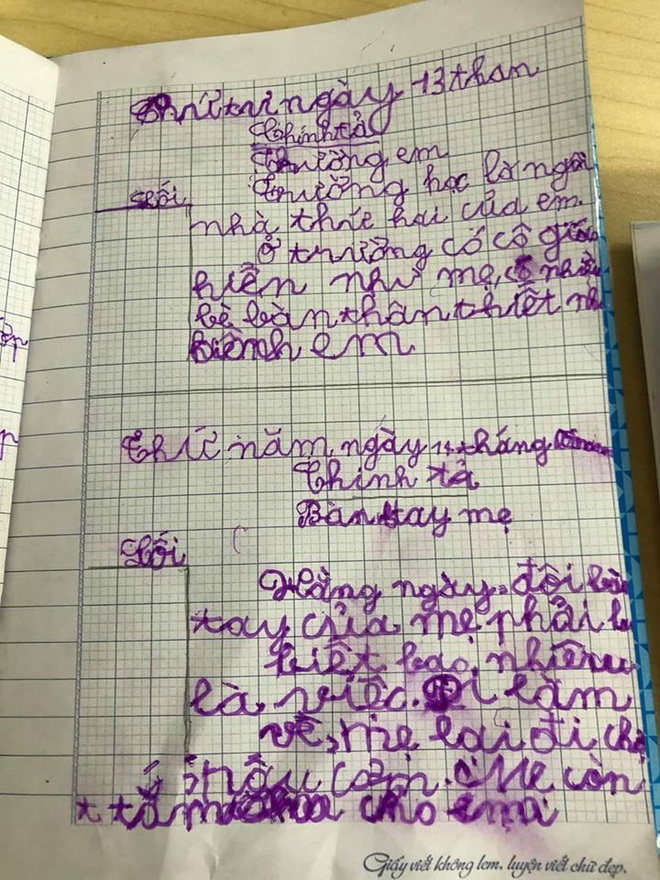 Thứ tư ngày 13 than
Chính tả
Trường em
Lỗi
Trường học là ngôi
nhà thứ hai của em.
Ở trường có cô giáo
hiền như mẹ, có nhiều
bè bạn thân thiết nh
em
Thứ năm ngày 14 tháng
Chính tả
Bàn tay mẹ
Lỗi
Hằng ngày, đôi bàn
tay của mẹ phải
biết bao nhiêu
là việc. Đi làm
về, mẹ lại đi chợ
nấu cơm. Mẹ còn
tắm cho em
Giấy viết không lem, luyện viết chữ đẹp.